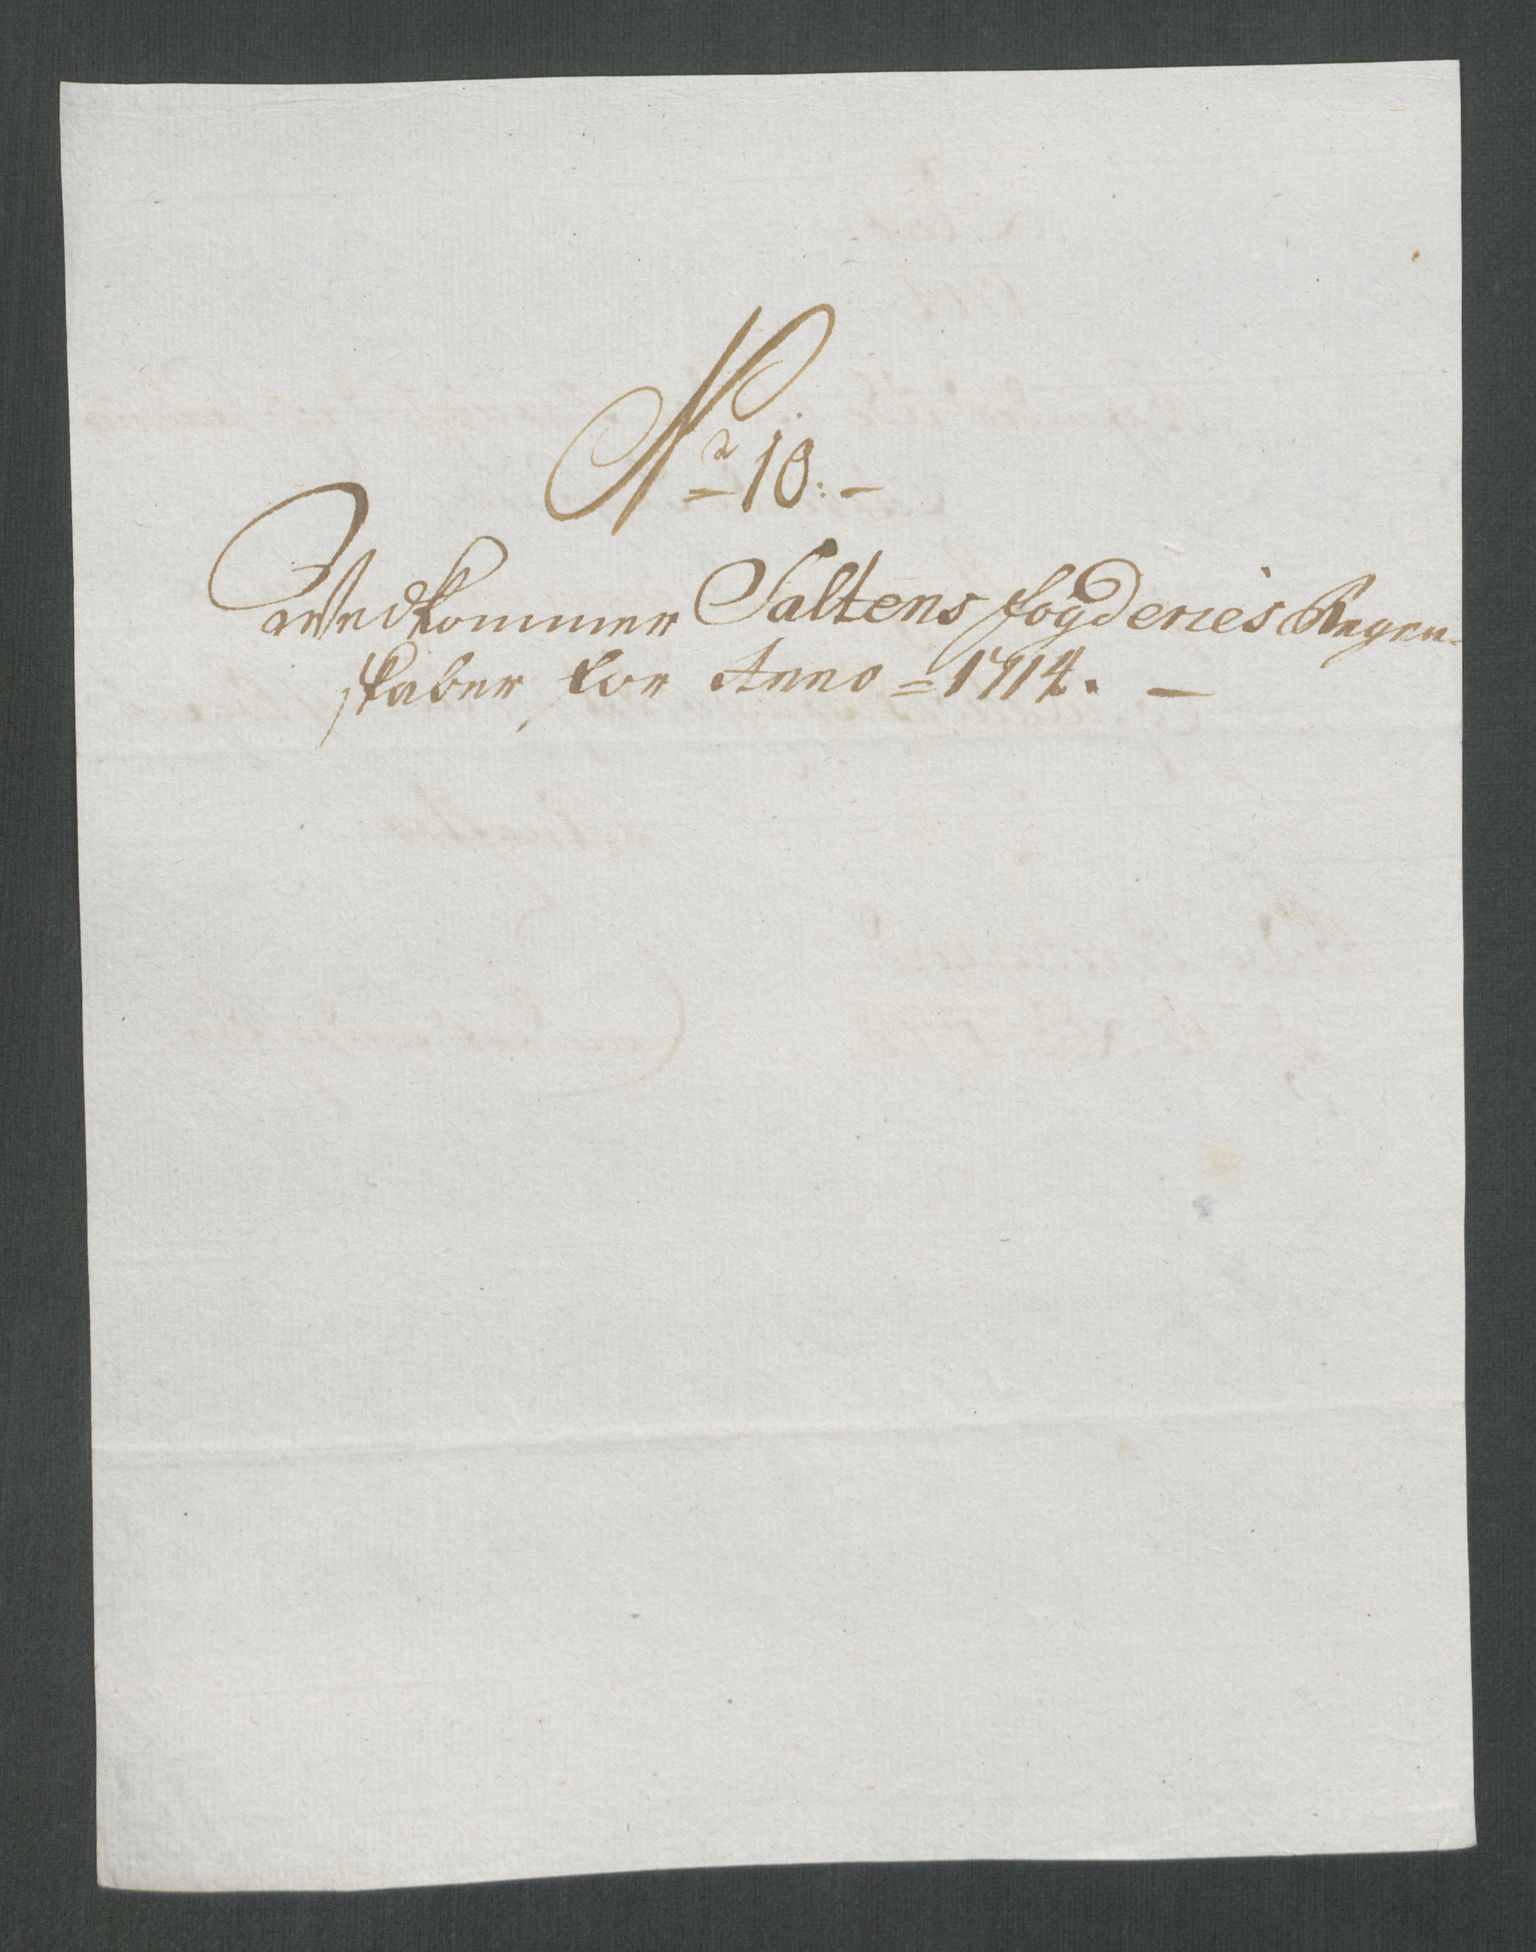 Nr 10:—
Vedkommer Saltens fogderies Regen-
skaber for Anno = 1714. —